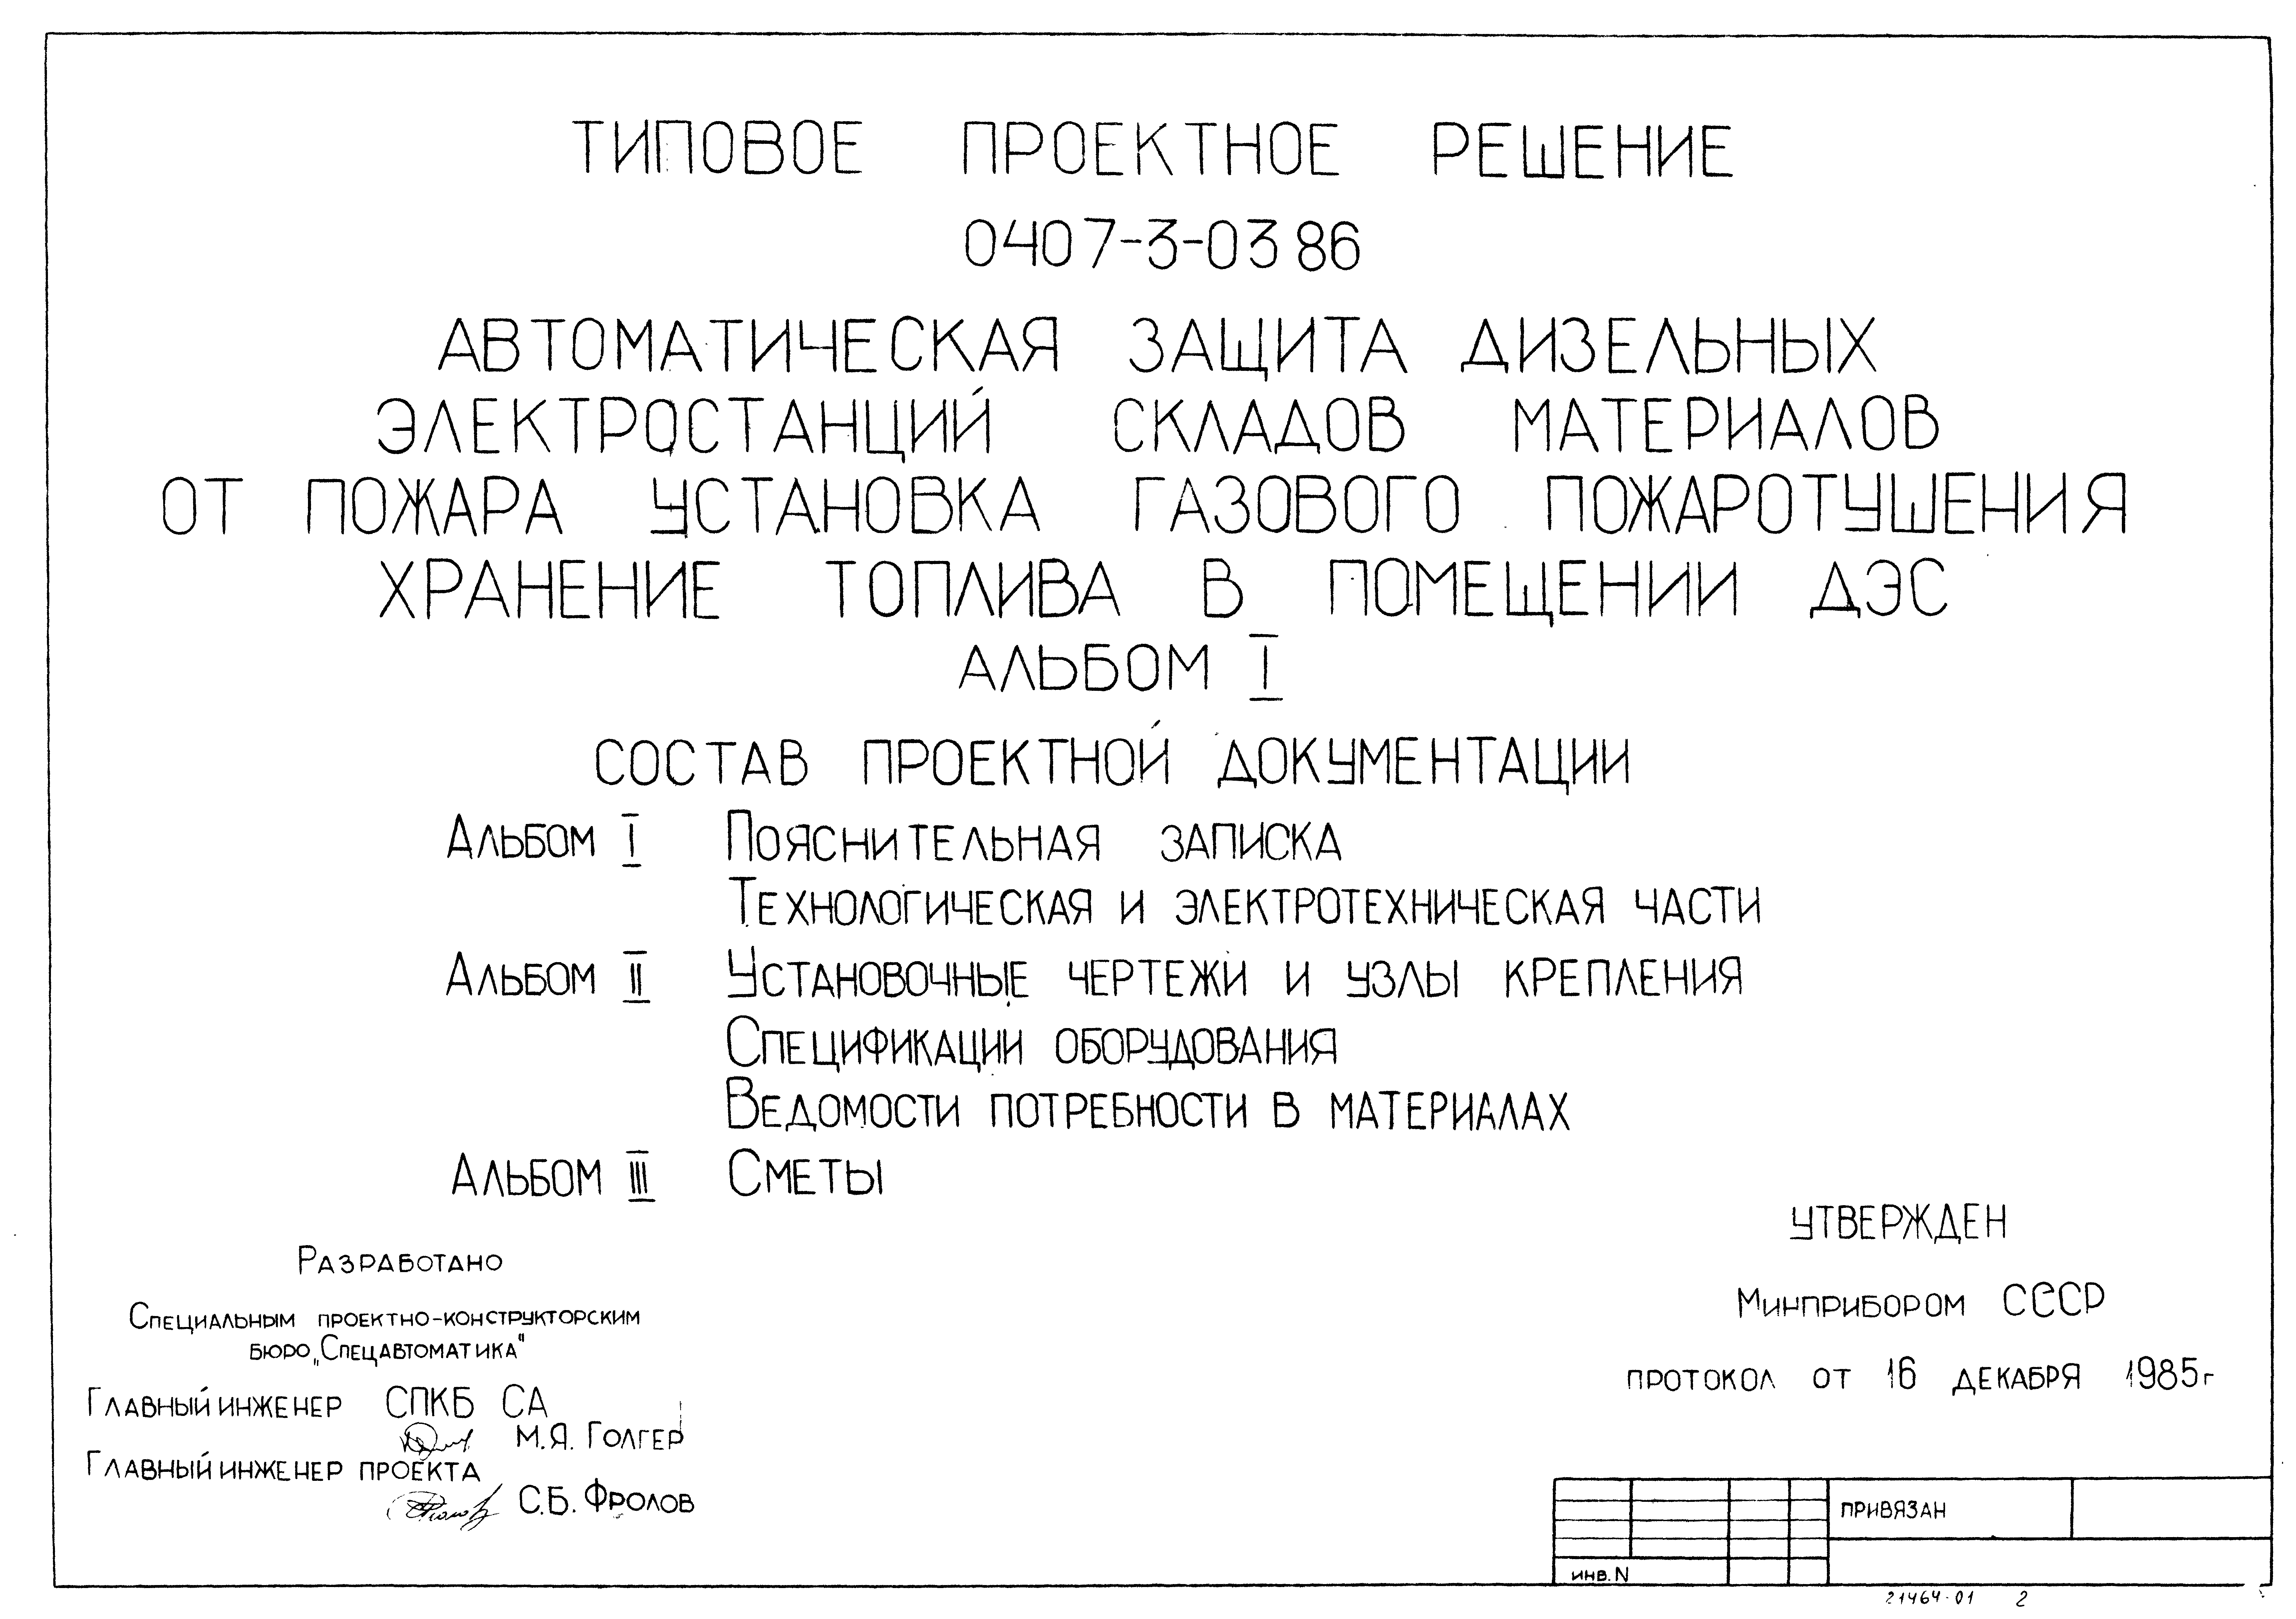 ТИПОВОЕ ПРОЕКТНОЕ РЕШЕНИЕ
0407-3-0386
АВТОМАТИЧЕСКАЯ ЗАЩИТА ДИЗЕЛЬНЫХ
ЭЛЕКТРОСТАНЦИЙ СКЛАДОВ МАТЕРИАЛОВ
ОТ ПОЖАРА УСТАНОВКА ГАЗОВОГО ПОЖАРОТУШЕНИЯ
ХРАНЕНИЕ ТОПЛИВА В ПОМЕЩЕНИИ ДЭС
АЛЬБОМ I
СОСТАВ ПРОЕКТНОЙ ДОКУМЕНТАЦИИ
АЛЬБОМ I ПОЯСНИТЕЛЬНАЯ ЗАПИСКА
ТЕХНОЛОГИЧЕСКАЯ И ЭЛЕКТРОТЕХНИЧЕСКАЯ ЧАСТИ
АЛЬБОМ II УСТАНОВОЧНЫЕ ЧЕРТЕЖИ И УЗЛЫ КРЕПЛЕНИЯ
СПЕЦИФИКАЦИИ ОБОРУДОВАНИЯ
ВЕДОМОСТИ ПОТРЕБНОСТИ В МАТЕРИАЛАХ
АЛЬБОМ III СМЕТЫ
РАЗРАБОТАНО
СПЕЦИАЛЬНЫМ ПРОЕКТНО-КОНСТРУКТОРСКИМ
БЮРО „СПЕЦАВТОМАТИКА“
ГЛАВНЫЙ ИНЖЕНЕР СПКБ СА
М.Я. ГОЛГЕР
ГЛАВНЫЙ ИНЖЕНЕР ПРОЕКТА
С.Б. ФРОЛОВ
УТВЕРЖДЕН
МИНПРИБОРОМ СССР
ПРОТОКОЛ ОТ 16 ДЕКАБРЯ 1985г
ПРИВЯЗАН
ИНВ. N
21464-01 2